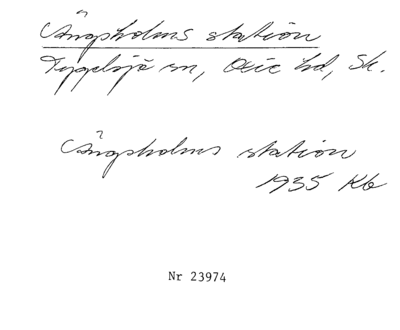 Ängsholms station
Tygelsjö sn, Oxie hd, Sk.
Ängsholms station
1935 Kb
Nr 23974